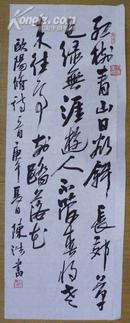 红树青山日欲斜长郊草
色绿无涯游人不管春将老
来往亭前踏落花
欧阳修诗一首庚午